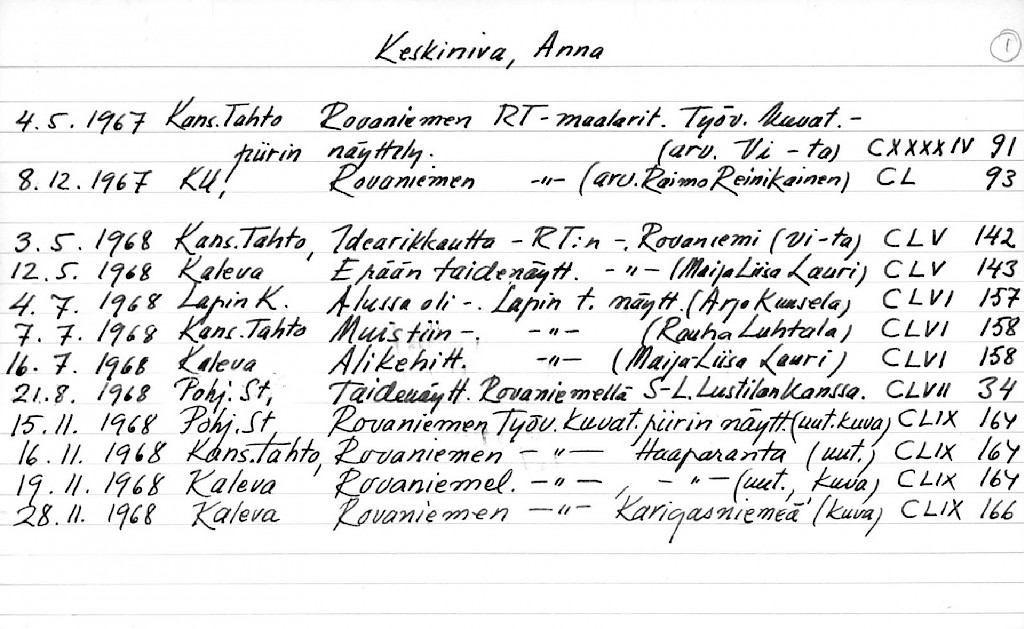 Keskiniva, Anna
1
4.5.1967 Kans.Tahto Rovaniemen RT-maalarit. Työv. kuvat.-
piirin näyttely. (arv. Vi-ta) CXXXXIV 91
8.12.1967 KU, Rovaniemen -"- (arv. Raimo Reinikainen) CL 93
3.5.1968 Kans.Tahto, Idearikkautta - RT:n -, Rovaniemi (Vi-ta) CLV 142
12.5.1968 Kaleva Erään taidenäytt. -"- (Maija Liisa Lauri) CLV 143
4.7.1968 Lapin K. Alussa oli -. Lapin t. näytt. (Arjo Kuusela) CLVI 157
7.7.1968 Kans.Tahto Muistiin -, -"- (Rauha Luhtala) CLVI 158
16.7.1968 Kaleva Alikehitt. -"- (Maija-Liisa Lauri) CLVI 158
21.8.1968 Pohj.St, Taidenäytt. Rovaniemellä S-L. Lustilan kanssa. CLVII 34
15.11.1968 Pohj.St Rovaniemen Työv. kuvat. piirin näytt. (uut. kuva) CLIX 164
16.11.1968 Kans.Tahto, Rovaniemen -"- Haaparanta (uut.) CLIX 164
19.11.1968 Kaleva Rovaniemel. -"-, -"- (uut., kuva) CLIX 164
28.11.1968 Kaleva Rovaniemen -"- Karigasniemeä (kuva) CLIX 166